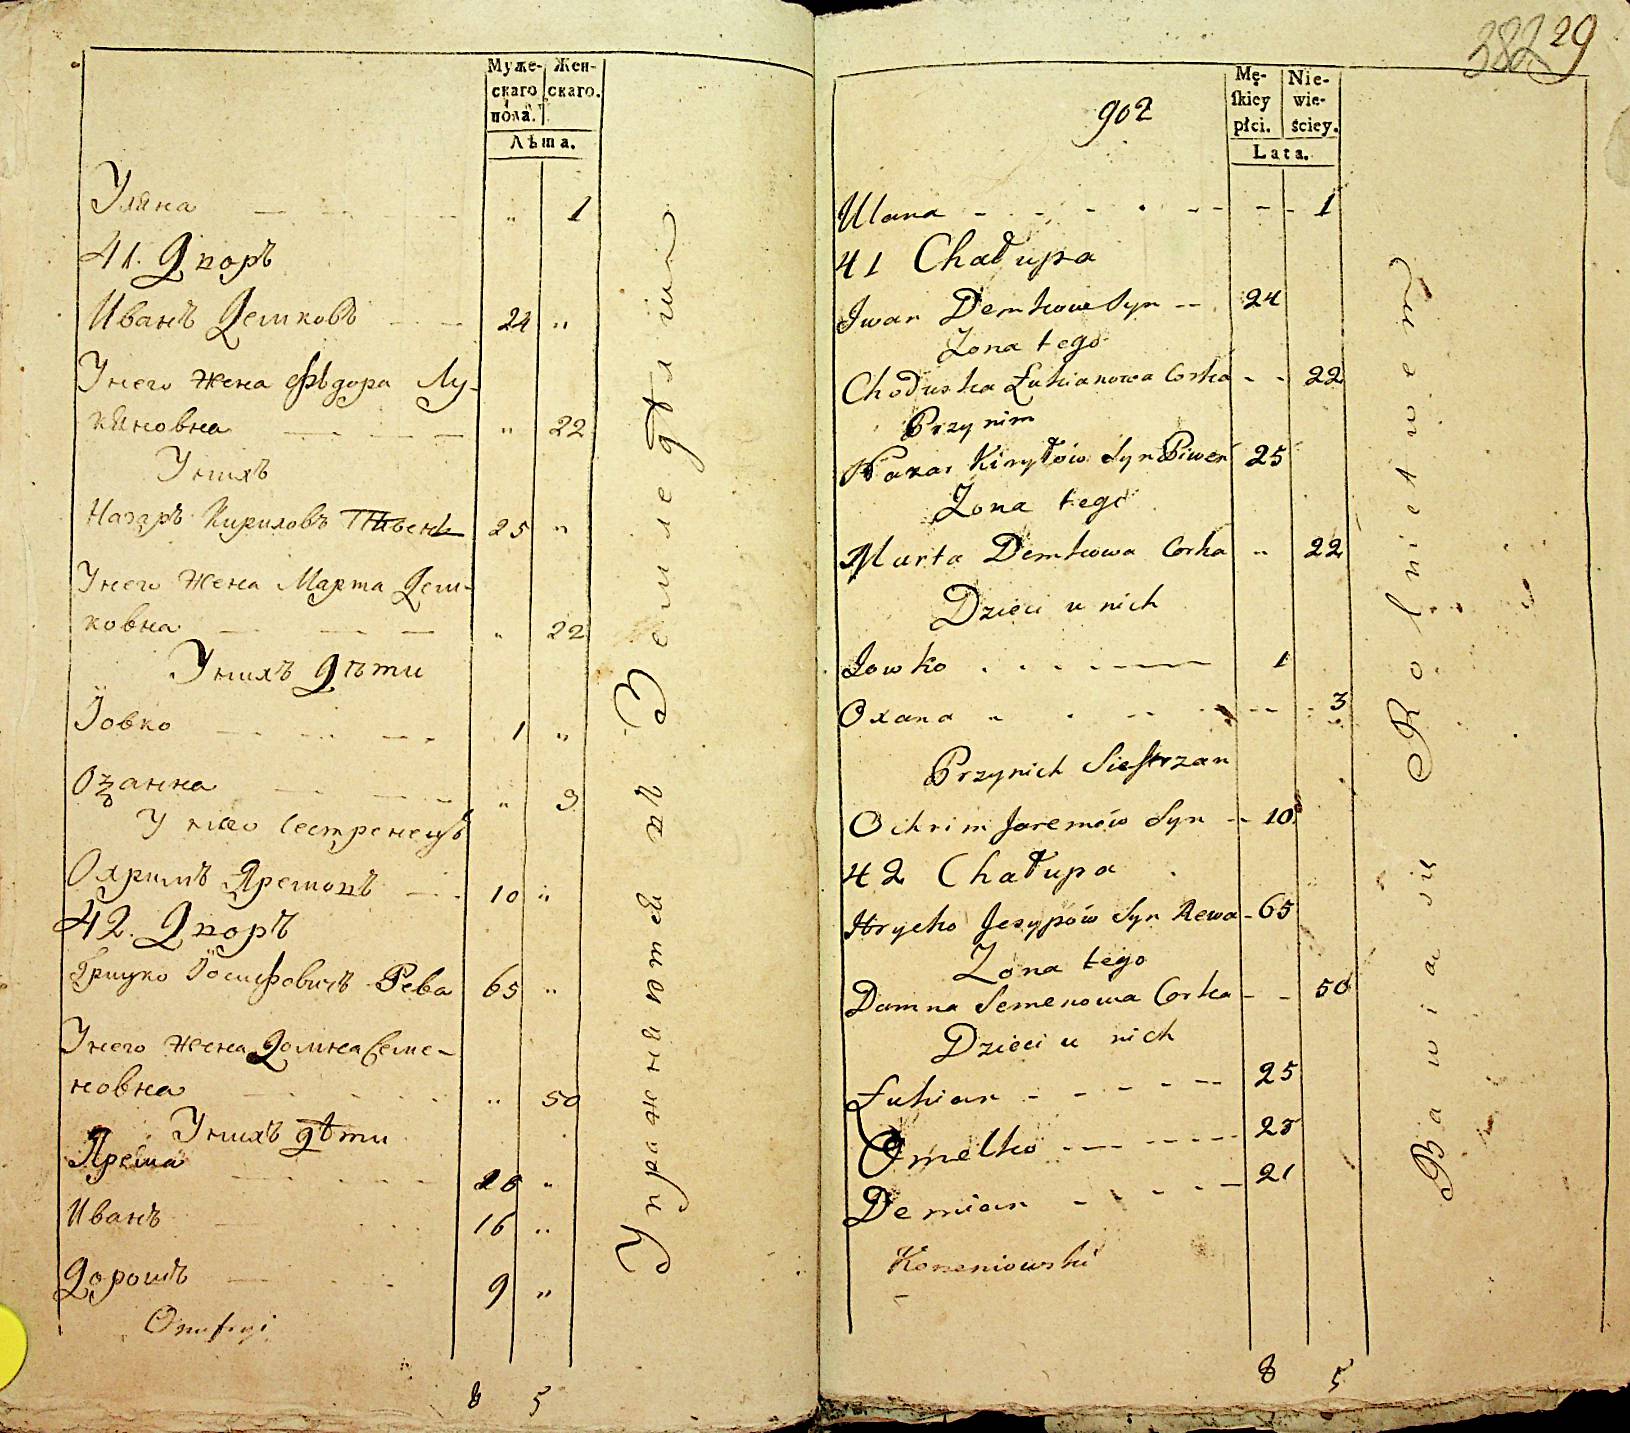 Муже-
скаго
пола.
Жен-
скаго.
Лѣта.
Уляна 1
41. Дворъ
Иванъ Демковъ 24 "
Унего жена Фѣдора Лу-
кяновна " 22
Унихъ
Назаръ Кириловъ Пивень 25 "
Унего жена Марта Дем-
ковна " 22
Унихъ дѣти
Іовко 1 "
Оѯанна " 3
У него Сестренецъ
Охримъ Яремовъ 10 "
42. Дворъ
Грицко Іосифовичъ Рева 65 "
Унего жена Домна Семе-
новна " 50
Унихъ дѣти
Ярема "
Иванъ 16 "
Дорошъ 9 "
8 5
Упражняются въ Земледѣліи
382 29
902
Mę-
skiey
płci.
Nie-
wie-
ściey.
Lata.
Ulana 1
41 Chałupa
Iwan Demkow Syn 24
Zona tego
Chodurka Łukianowa Corka 22
Przy nim
Nazar Kiryłów Syn Piweń 25
Zona tego
Marta Demkowa Corka " 22
Dzieci u nich
Jowko 1
Oxana 3
Przynich Siestrzan
Ochrim Jaremów Syn 10
42 Chałupa
Hrycko Jesypów Syn Rewa 65
Zona tego
Domna Semenowa Corka 50
Dzieci u nich
Łukian 25
Omelko 23
Demian 21
Korzeniowski
8 5
Bawia się Rolnictwem